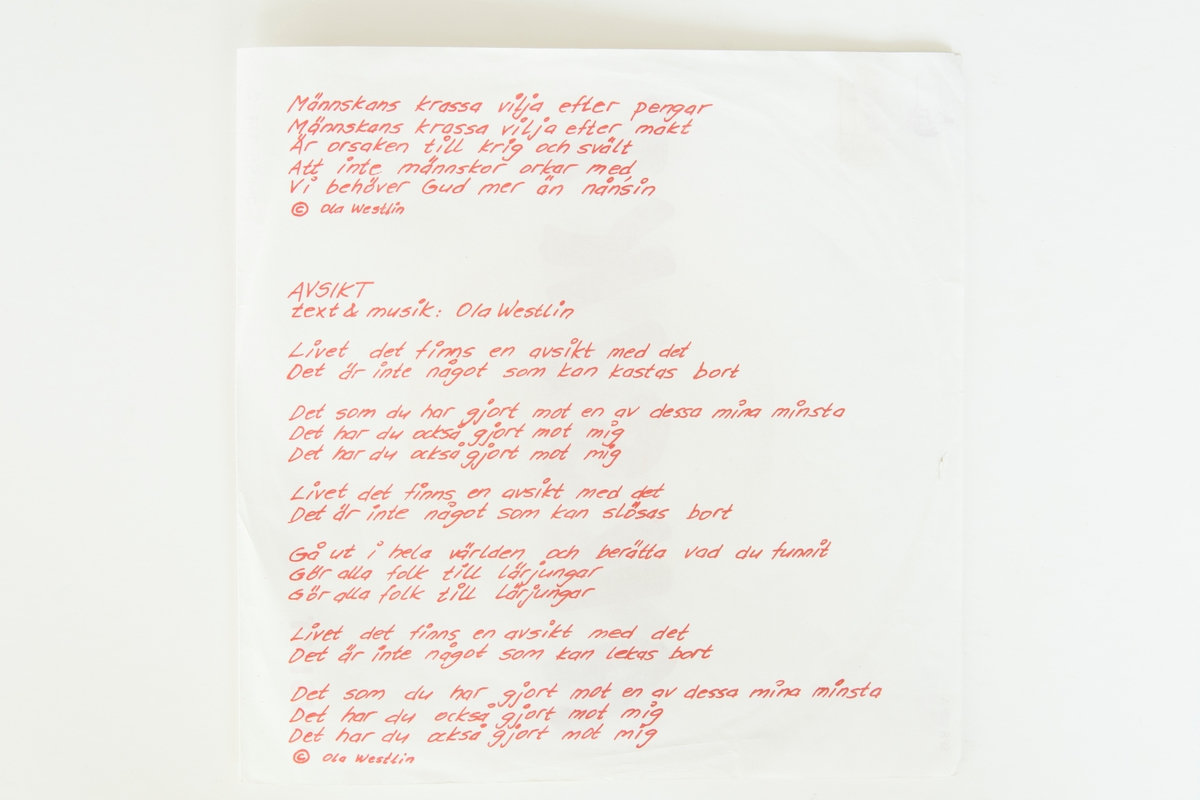 Männskans krassa vilja efter pengar
Männskans krassa vilja efter makt
Är orsaken till krig och svält
Att inte männskor orkar med,
Vi behöver Gud mer än nånsin
© Ola Westlin
AVSIKT
text & musik: Ola Westlin
Livet det finns en avsikt med det
Det är inte något som kan kastas bort
Det som du har gjort mot en av dessa mina minsta
Det har du också gjort mot mig
Det har du också gjort mot mig
Livet det finns en avsikt med det
Det är inte något som kan slösas bort
Gå ut i hela världen och berätta vad du funnit
Gör alla folk till lärjungar
Gör alla folk till lärjungar
Livet det finns en avsikt med det
Det är inte något som kan lekas bort
Det som du har gjort mot en av dessa mina minsta
Det har du också gjort mot mig
Det har du också gjort mot mig
© Ola Westlin